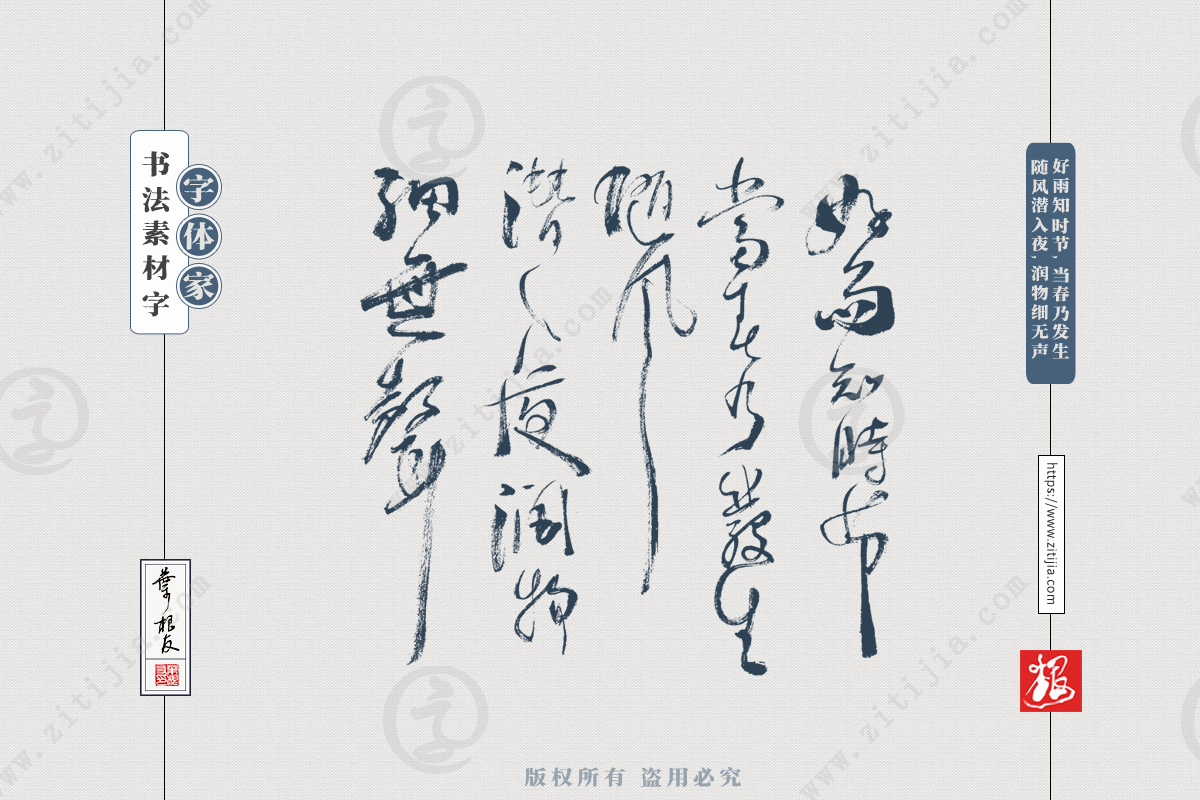 好雨知时节,当春乃发生
随风潜入夜,润物细无声
https://www.zitijia.com
好雨知時节
當春乃發生
隨風
潛入夜潤物
細無聲
字体家
书法素材字
葉根友
版权所有 盗用必究
www.zitijia.com